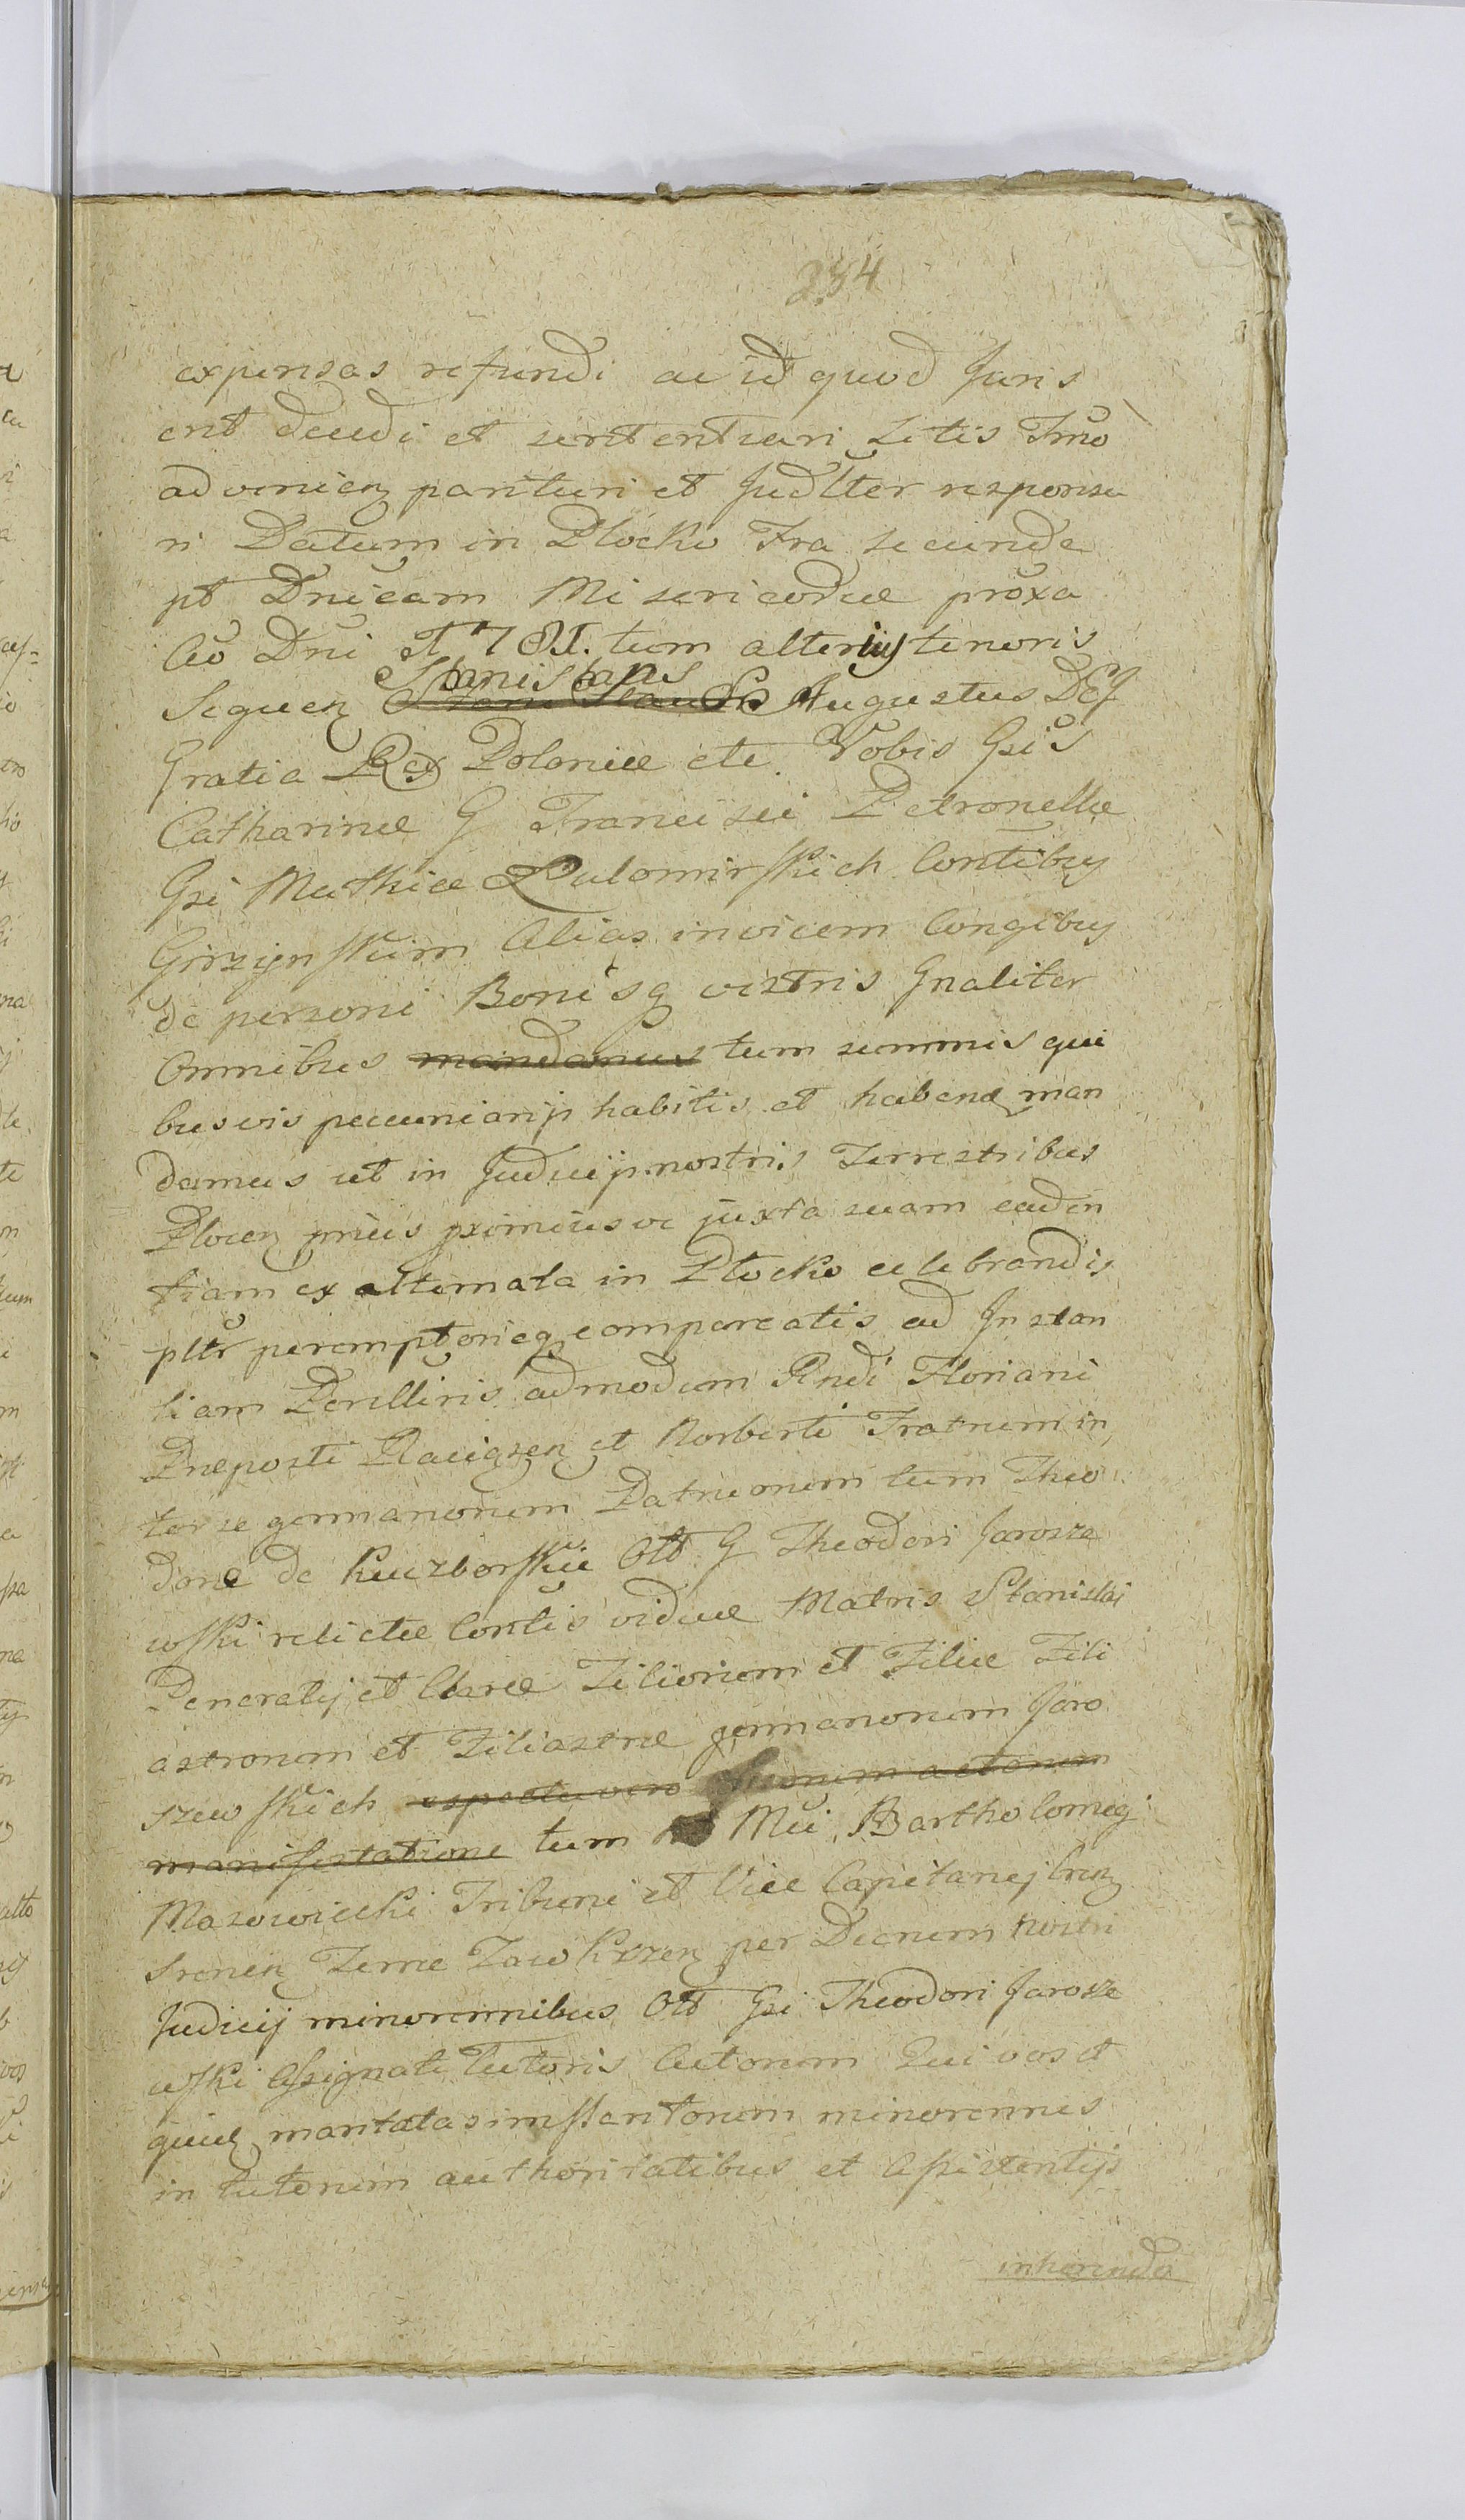 254
expensas refundi ac id quod Juris
erit decidi et sententiari Litis Trno
advenien parituri et Judlter responsu
ri Datum in Płocko Fra secunda
pt Dnicam Misericordiæ proxa
Ao Dni 1781. tum alterius tenoris
Stanislaus
Sequen Stanislaus Augustus Dej
Gratia Rex Poloniæ etc. Vobis Gsis
Catharinæ G Francisci Petronellæ
Gsi Mathiæ Lulomirskich Contibus
Girzynskim Alias invicem Congibus
de personi Bonisq vestris Gnaliter
Omnibus mandamus tum summis qui
busvis pecuniarijs habitis et haben man
damus ut in Judicijs nostris Terrestribus
Plocen prius proximiusve juxta suam caden
tiam ex alternata in Płocko celebrandis
pltr peremptorieq compareatis ad Instan
tiam Perillris admodum Rndi Floriani
Præposti Raciązen et Norberti Fratrum in
ter se germanorum Patruorum tum Theo
doræ de Kuczborskie Olt G Theodori Jarosze
wski relictæ Contis viduæ Matris Stanislai
Generalis et Claræ Filiorum et Filiæ Fili
astrorum et Filiastræ germanorum Jaro
szewskich actorum
manifestatione tum Mci Bartholomej
Mazowiecki Tribuni et Vice Capitanej Cren
Srenen Terræ Zawkrzen per Decrum nostri
Judicij minorennibus Olt Gsi Theodori Jarosze
wski Assignati Tutoris Actorum Qui vos et
quidem maritatas imssessorum minorennes
in tutorum authoritatibus et Assistentijs
inherendo